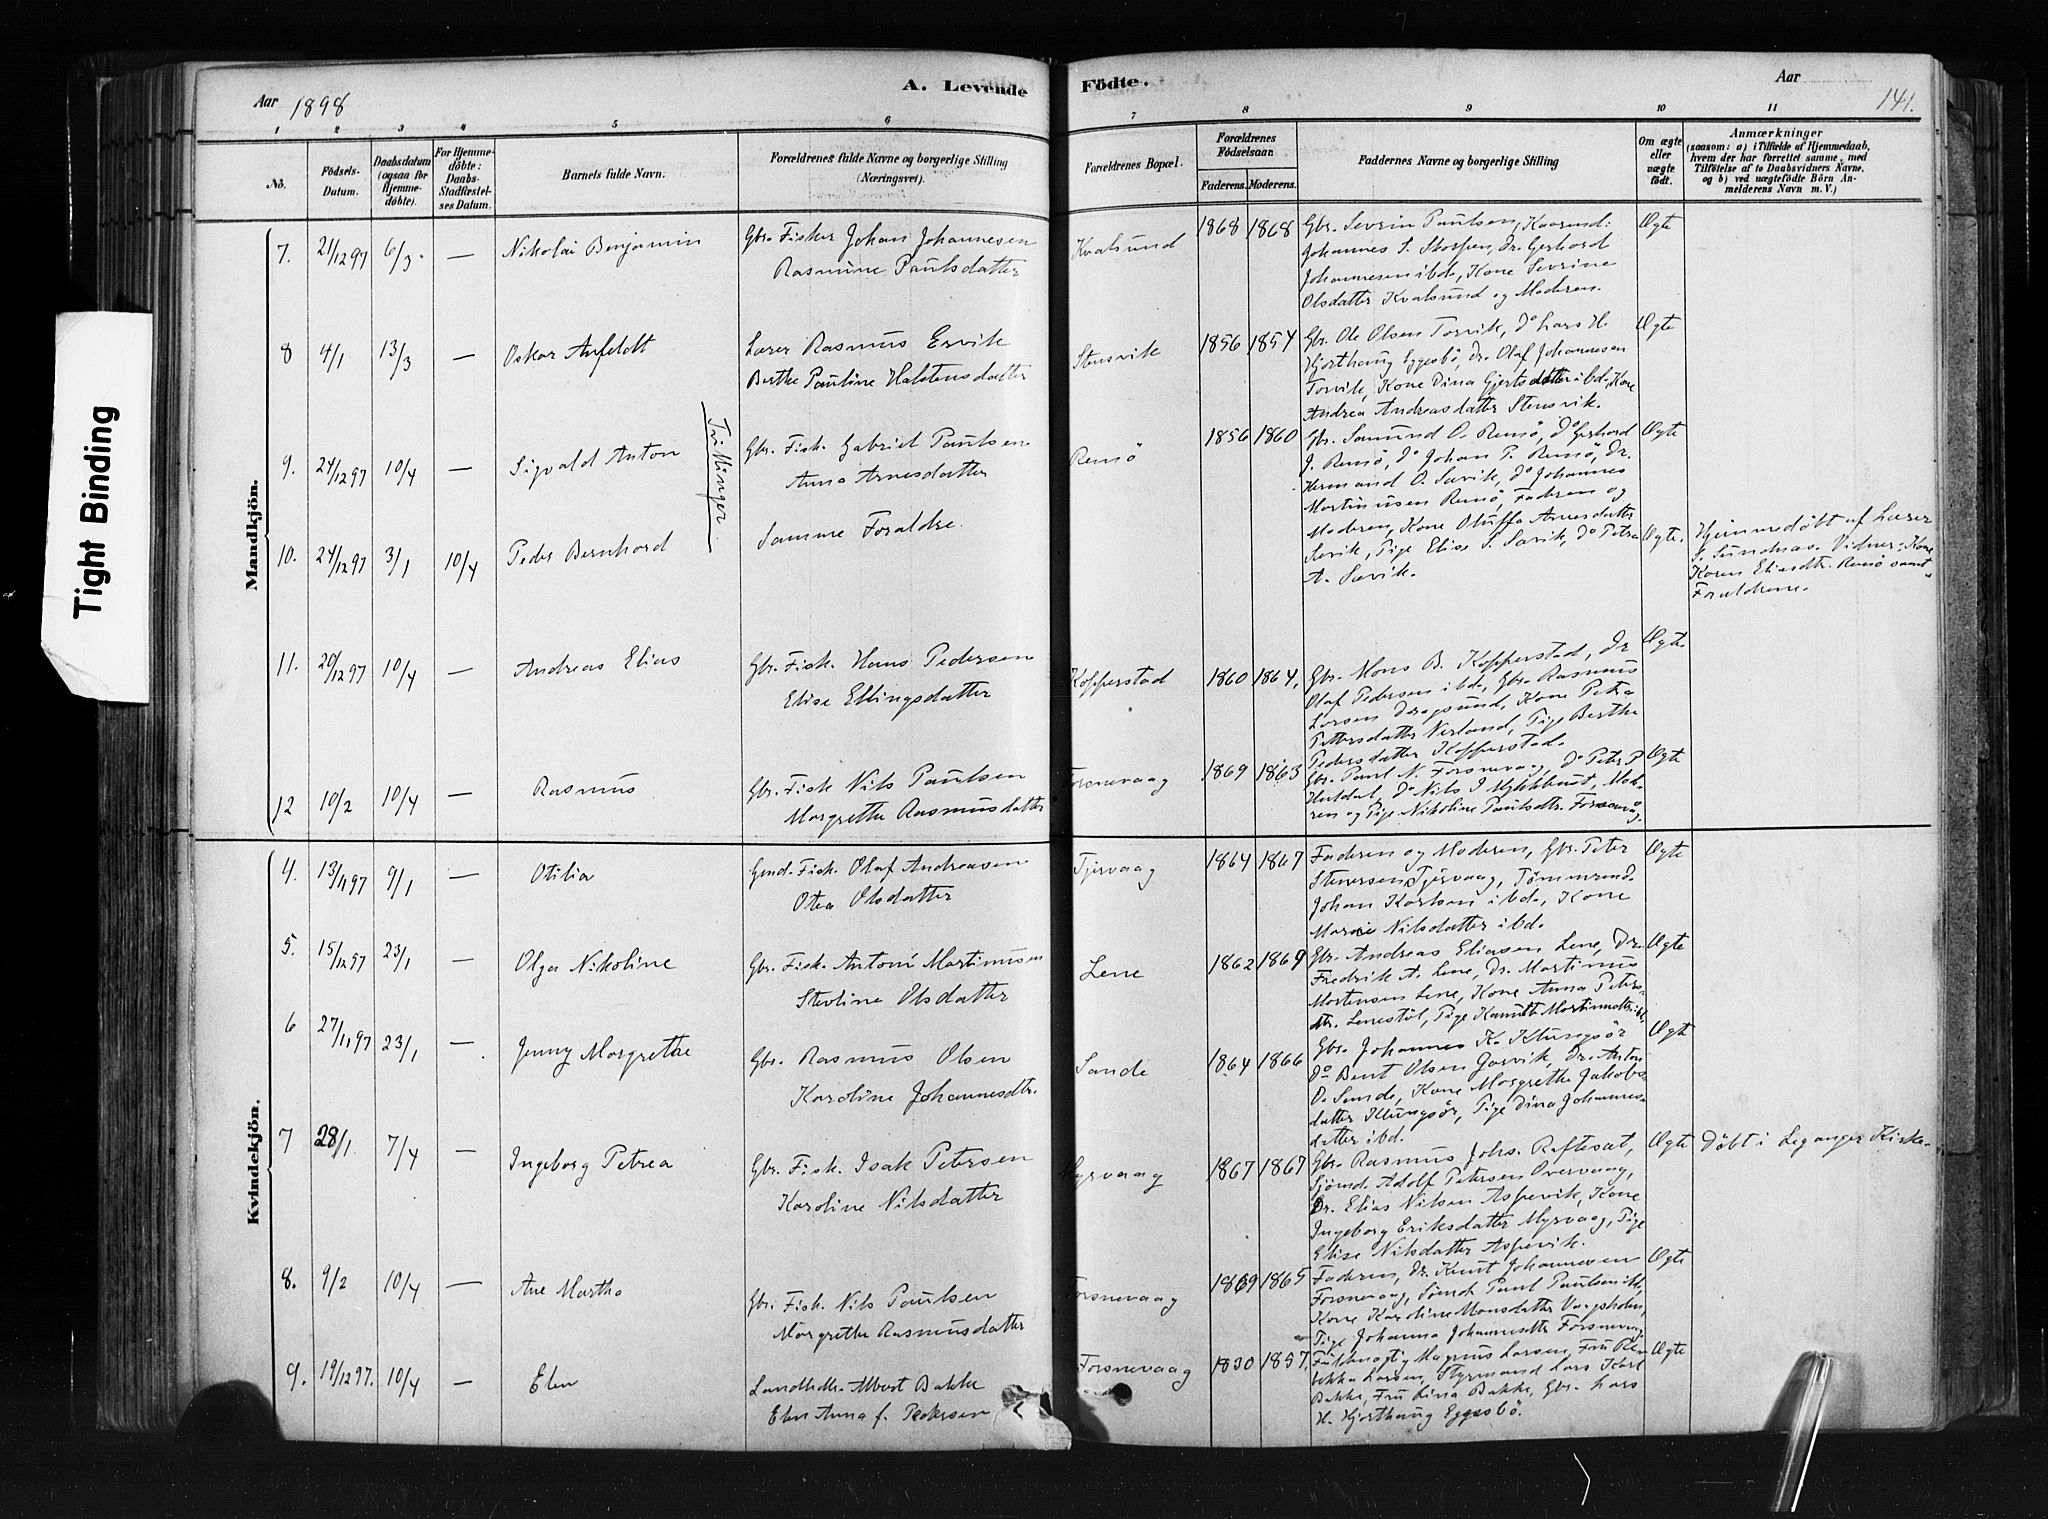 Tight Binding
Aar 1898
A. Levende
Födte.
Aar
141.
1 2 3 4 5 6 7 8 9 10 11
No.
Födsels-
Datum.
Daabsdatum
(ogsaa for
Hjemme-
döbte).
For Hjemme-
döbte:
Daabs-
Stadfæstel-
ses Datum.
Barnets fulde Navn.
Forældrenes fulde Navne og borgerlige Stilling
(Næringsvei).
Forældrenes Bopæl.
Forældrenes
Födselsaar.
Faderens. Moderens.
Faddernes Navne og borgerlige Stilling
Om ægte
eller
uægte
födt.
Anmærkninger
(saasom: a) i Tilfælde af Hjemmedaab,
hvem der har forrettet samme, med
Tilföielse af to Daabsvidners Navne,
og b) ved uægtefödte Börn An-
melderens Navn m. V.)
Mandkjön.
7. 21/12 97 6/3. — Nikolai Benjamin
Gbr. Fisker Johan Johannesen
Rasmine Paulsdatter
Kvalsund
1868 1868
Gbr. Sevrin Paulsen,
Johannes S. Skorpen, Dr. Gerhard
Johannesen ibd, Kone Sevrine
Olsdatter Kvalsund og Moderen.
Ægte
8 4/1 13/3 — Oskar Anfeldt
Lærer Rasmus Ervik
Berthe Pauline Halstensdatter
Stensvik
1856 1854
Gbr. Ole Olsen Torvik, do Lars H.
Hjorthaug Eggesbö, Dr. Olaf Johannesen
Torvik, Kone Dina Gjertsdatter ibd, Kone
Andrea Andreasdatter Stensvik.
Ægte
9. 24/12 97 10/4 — Sigvald Anton
Tvillinger
Gbr. Fisk. Gabriel Paulsen
Anna Arnesdatter
Remö
1856 1860
Gbr. Samund O. Remö, do Gerhard
J. Remö, do Johan P. Remö, Dr.
Hermand O. Sævik, do Johannes
Martinusen Remö Faderen og
Moderen, Kone Oluffa Arnesdatter
Sævik, Pige Elise S. Sævik, do Petra
A. Sævik.
Ægte
10. 24/12 97 3/1 10/4 Peder Bernhard
Samme Forældre.
Ægte.
Hjemmedöbt af Lærer
S. Sundnæs. Vidner: Kone
Karen Eliasdtr. Remö samt
Forældrene.
11. 20/12 97 10/4 — Andreas Elias
Gbr. Fisk. Hans Pedersen
Elise Ellingsdatter
Kopperstad
1860 1864.
Gbr. Mons B. Kopperstad, Dr
Olaf Pedersen ibd, Gbr. Rasmus
Larsen Dragsund, Kone Petra
Pettersdatter Nerland, Pige Berthe
Pedersdatter Kopperstad.
Ægte
12 10/2 10/4 — Rasmus
Gbr. Fisk Nils Paulsen
Margrethe Rasmusdatter
Forsnevaag
1869 1863
Gbr. Paul N. Forsnevaag, do Peter P
Huldal, do Nils J Myklebust, Mode-
ren og Pige Nikoline Paulsdtr. Forsnevaag
Ægte
Kvindekjön.
4. 13/11 97 9/1 — Otilia
Fisk. Olaf Andreasen
Otea Olsdatter
Tjervaag
1864 1867
Faderen og Moderen, Gbr. Peter
Stenersen Tjervaag, Tømmrmd.
Johan Karlsen ibd., Kone
Marie Nilsdatter ibd.
Ægte
5. 15/12 97 23/1 — Olga Nikoline
Gbr. Fisk. Antoni Martinusen
Stevline Olsdatter
Lene
1862 1869
Gbr. Andreas Eliasen Lene, Dr.
Fredrik A. Lene, Dr. Martinus
Mortensen Lene, Kone Anna Peters-
dtr. Lenestöl, Pige
Ægte
6 27/11 97 23/1 — Jenny Margrethe
Gbr. Rasmus Olsen
Karoline Johannesdtr.
Sande
1864 1866
Gbr. Johannes K. Klungsör
do Bent Olsen Jarvik, Dr. Anton
O. Sande, Kone Margrethe Jakobs-
datter Klungsör, Pige Dina Johannes-
datter ibd.
Ægte
7 28/1 7/4 — Ingeborg Petrea
Gbr. Fisk. Isak Petersen
Karoline Nilsdatter
Myrvaag
1867 1867
Gbr. Rasmus Johs. Raftesæt,
Sjømd. Adolf Petersen Overvaag,
Dr. Elias Nilsen Aspevik, Kone
Ingeborg Eriksdatter Myrvaag, Pige
Elise Nilsdatter Aspevik.
Ægte
Döbt i Leganger Kirke.
8. 9/2 10/4 — Ane Martha
Gbr. Fisk. Nils Paulsen
Margrethe Rasmusdatter
Forsnevaag
1869 1865
Faderen, Dr. Knut Johannesen
Forsnevaag, Sømd. Paul Paulsen ibd,
Kone Karoline Monsdatter Vaagsholm,
Pige Johanna Johannesdtr Forsnevaag
Ægte
9. 19/12 97. 10/4 — Elen
Landhdlr. Albert Bakke
Elen Anna f. Pedersen
Forsnevaag
1830 1857.
Fuldmægtig Magnus Larsen, Fru Re-
bekka Larsen, Styrmand Lars Karl
Bakke, Fru Lina Bakke, Gbr. Lars
H. Hjorthaug Eggesbö.
Ægte